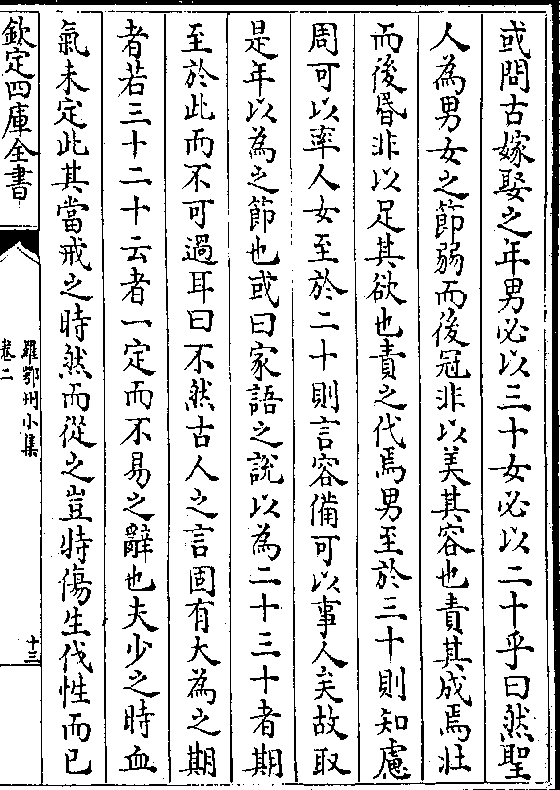 或問古嫁娶之年男必以三十女必以二十乎曰然聖
人為男女之節弱而後冠非以美其容也責其成焉壯
而後昬非以足其欲也責之代焉男至於三十則知慮
周可以率人女至於二十則言容備可以事人矣故取
是年以為之節也或曰家語之說以為二十三十者期
至於此而不可過耳曰不然古人之言固有大為之期
者若三十二十云者一定而不易之辭也夫少之時血
氣未定此其當戒之時然而從之豈特傷生伐性而已
欽定四庫全書
羅鄂州小集
卷二
十三